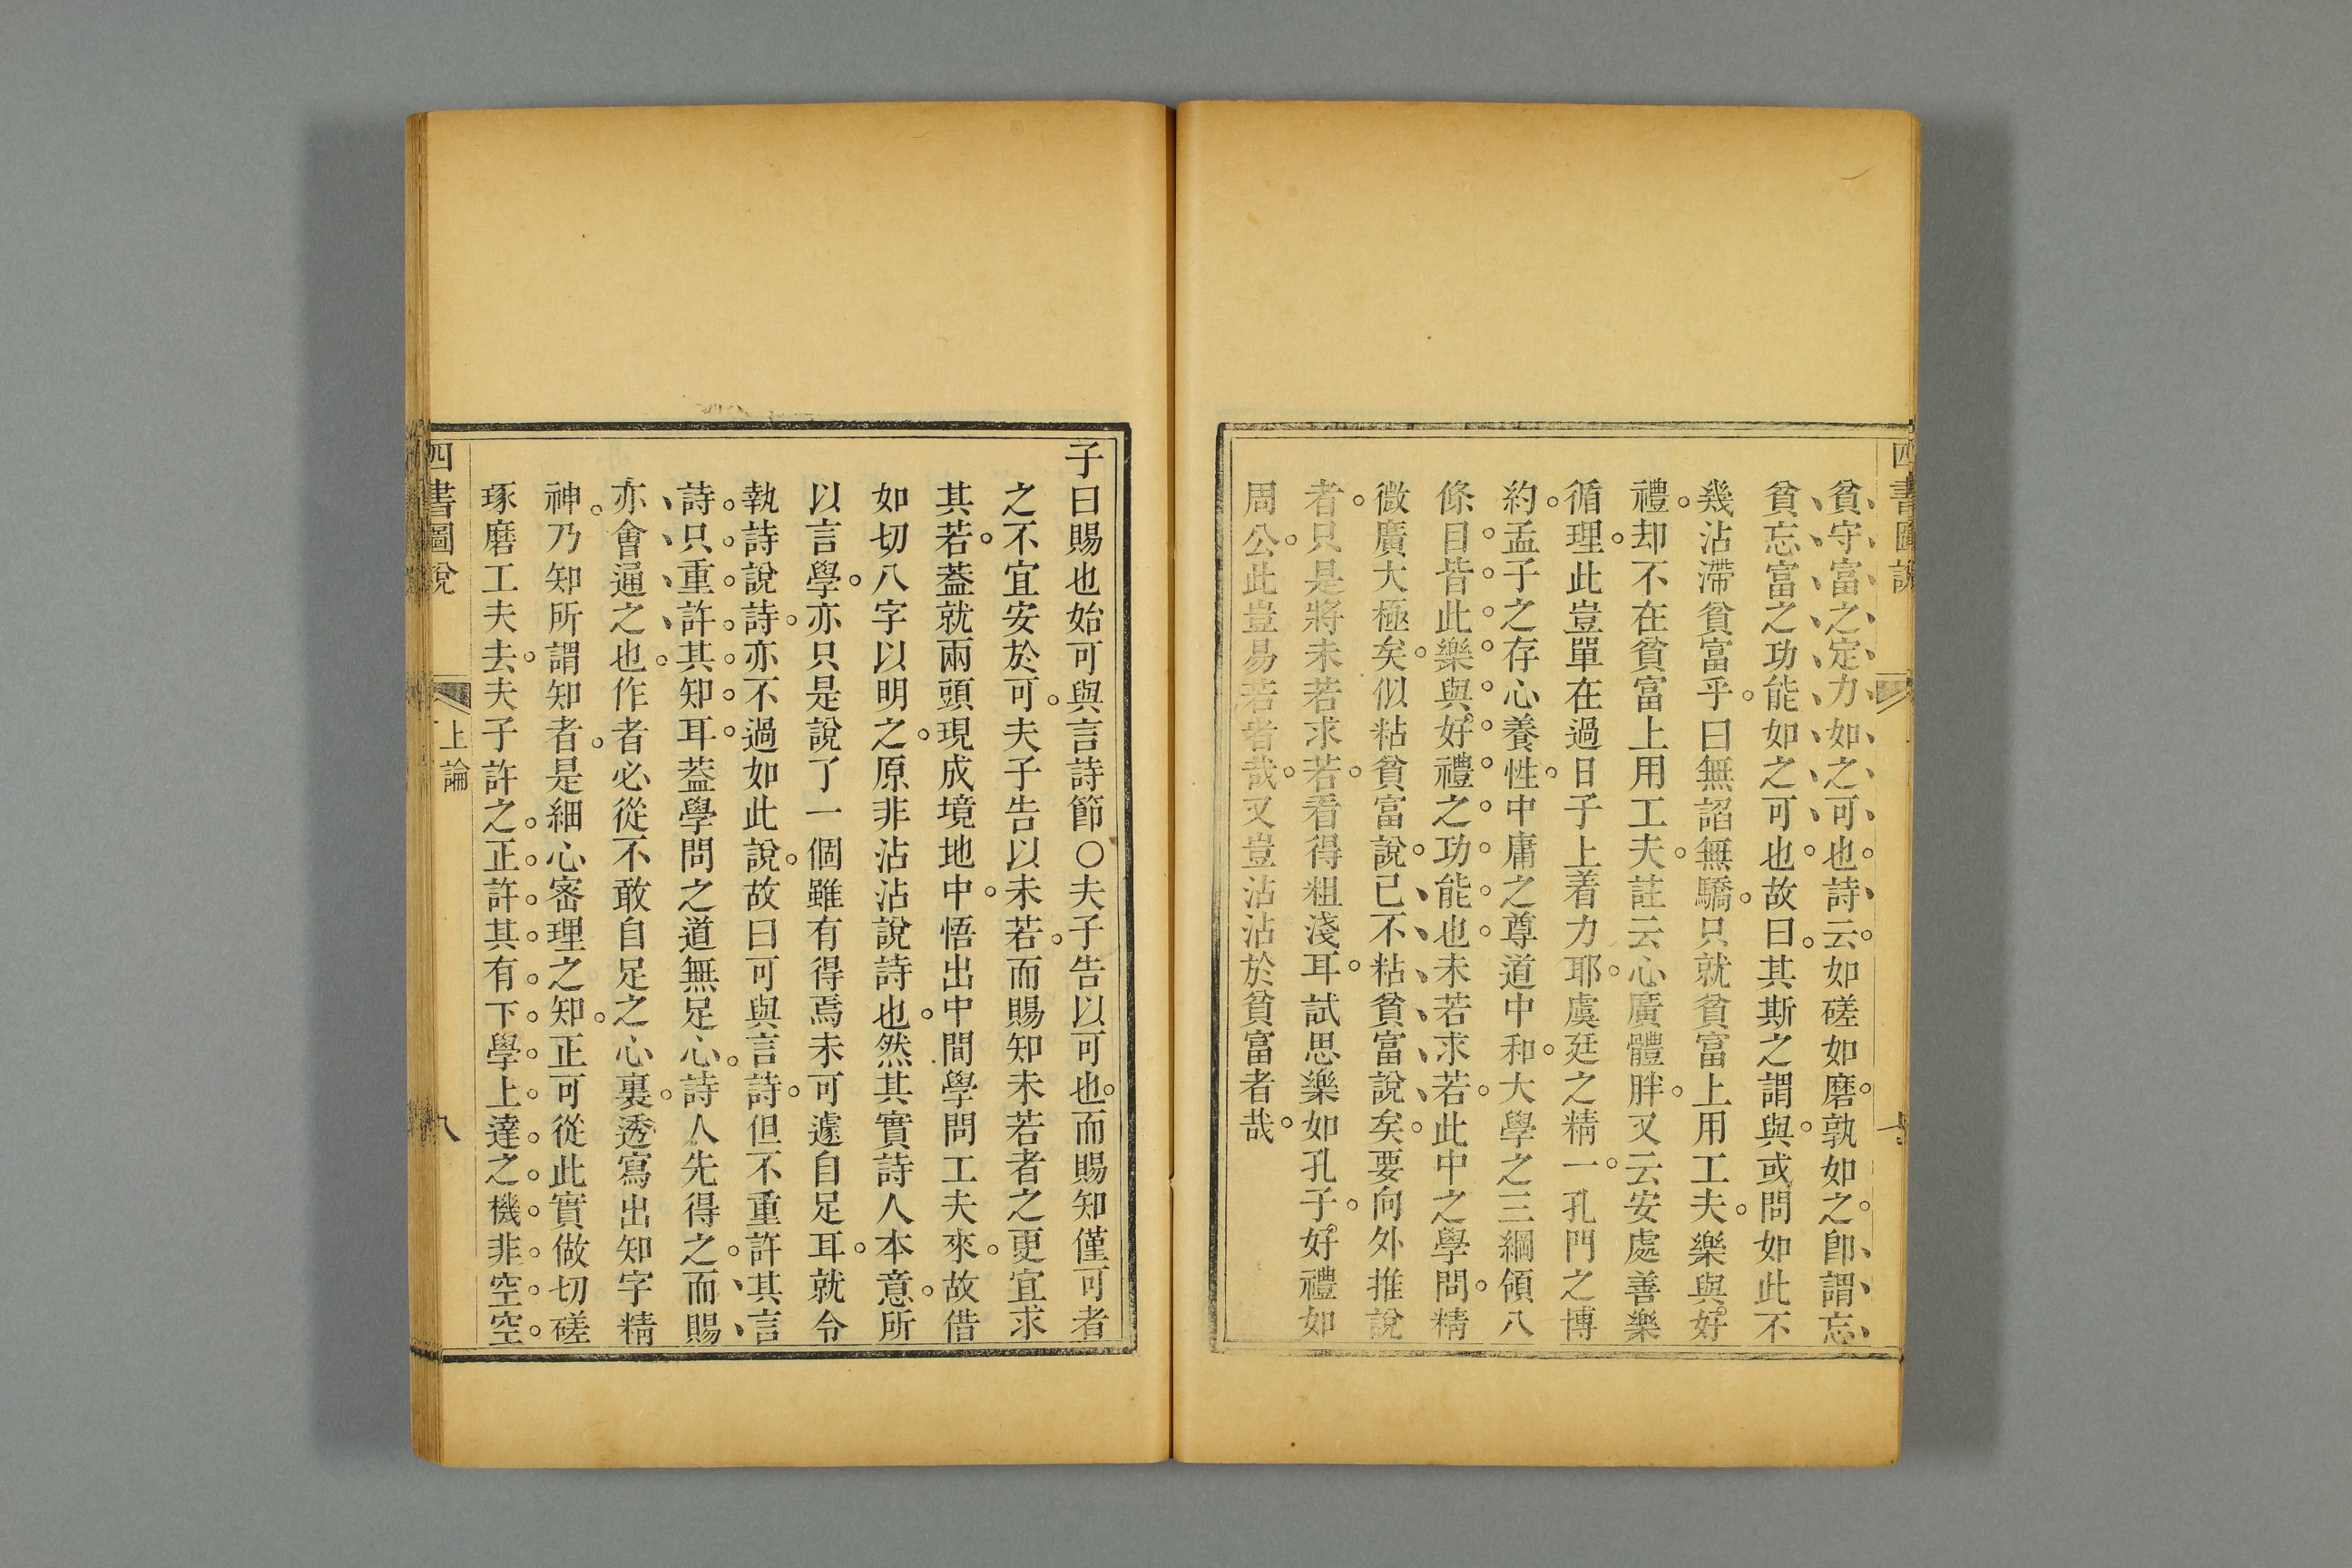 四書圖說
貧守富之定力如之可也詩云如磋如磨孰如之卽謂忘
貧忘富之功能如之可也故曰其斯之謂與或問如此不
幾沾滯貧富乎曰無諂無驕只就貧富上用工夫樂與好
禮却不在貧富上用工夫註云心廣體胖又云安處善樂
循理此豈單在過日子上着力耶虞廷之精一孔門之博
約孟子之存心養性中庸之尊道中和大學之三綱領八
條目皆此樂與好禮之功能也未若求若此中之學問精
微廣大極矣似粘貧富說已不粘貧富說矣要向外推說
者只是將未若求若看得粗淺耳試思樂如孔子好禮如
周公此豈易若者哉又豈沾沾於貧富者哉
子曰賜也始可與言詩節○夫子告以可也而賜知僅可者
之不宜安於可夫子告以未若而賜知未若者之更宜求
其若葢就兩頭現成境地中悟出中間學問工夫來故借
如切八字以明之原非沾沾說詩也然其實詩人本意所
以言學亦只是說了一個雖有得焉未可遽自足耳就令
執詩說詩亦不過如此說故曰可與言詩但不重許其言
詩只重許其知耳葢學問之道無足心詩人先得之而賜
亦會通之也作者必從不敢自足之心裏透寫出知字精
神乃知所謂知者是細心密理之知正可從此實做切磋
琢磨工夫去夫子許之正許其有下學上達之機非空空
四書圖說
上論
八